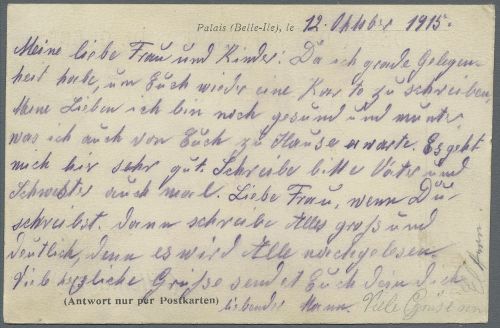 Palais (Belle-Ile), le 12. Oktober 1915.
Meine liebe Frau und Kinder! Da ich grade Gelegen-
heit habe, um Euch wieder eine Karte zu schreiben,
Meine Lieben ich bin noch gesund und munter
was ich auch von Euch zu Hause erwarte. Es geht
mich hir sehr gut. Schreibe bitte Vater und
Schwester auch mal. Liebe Frau, wenn Du
schreibst. dann schreibe Alles groß und
deutlich, denn es wird Alle nachgelesen.
Viele herzliche Grüße sendet Euch dein dich
(Antwort nur per Postkarten) liebender Mann. Viele Grüße von